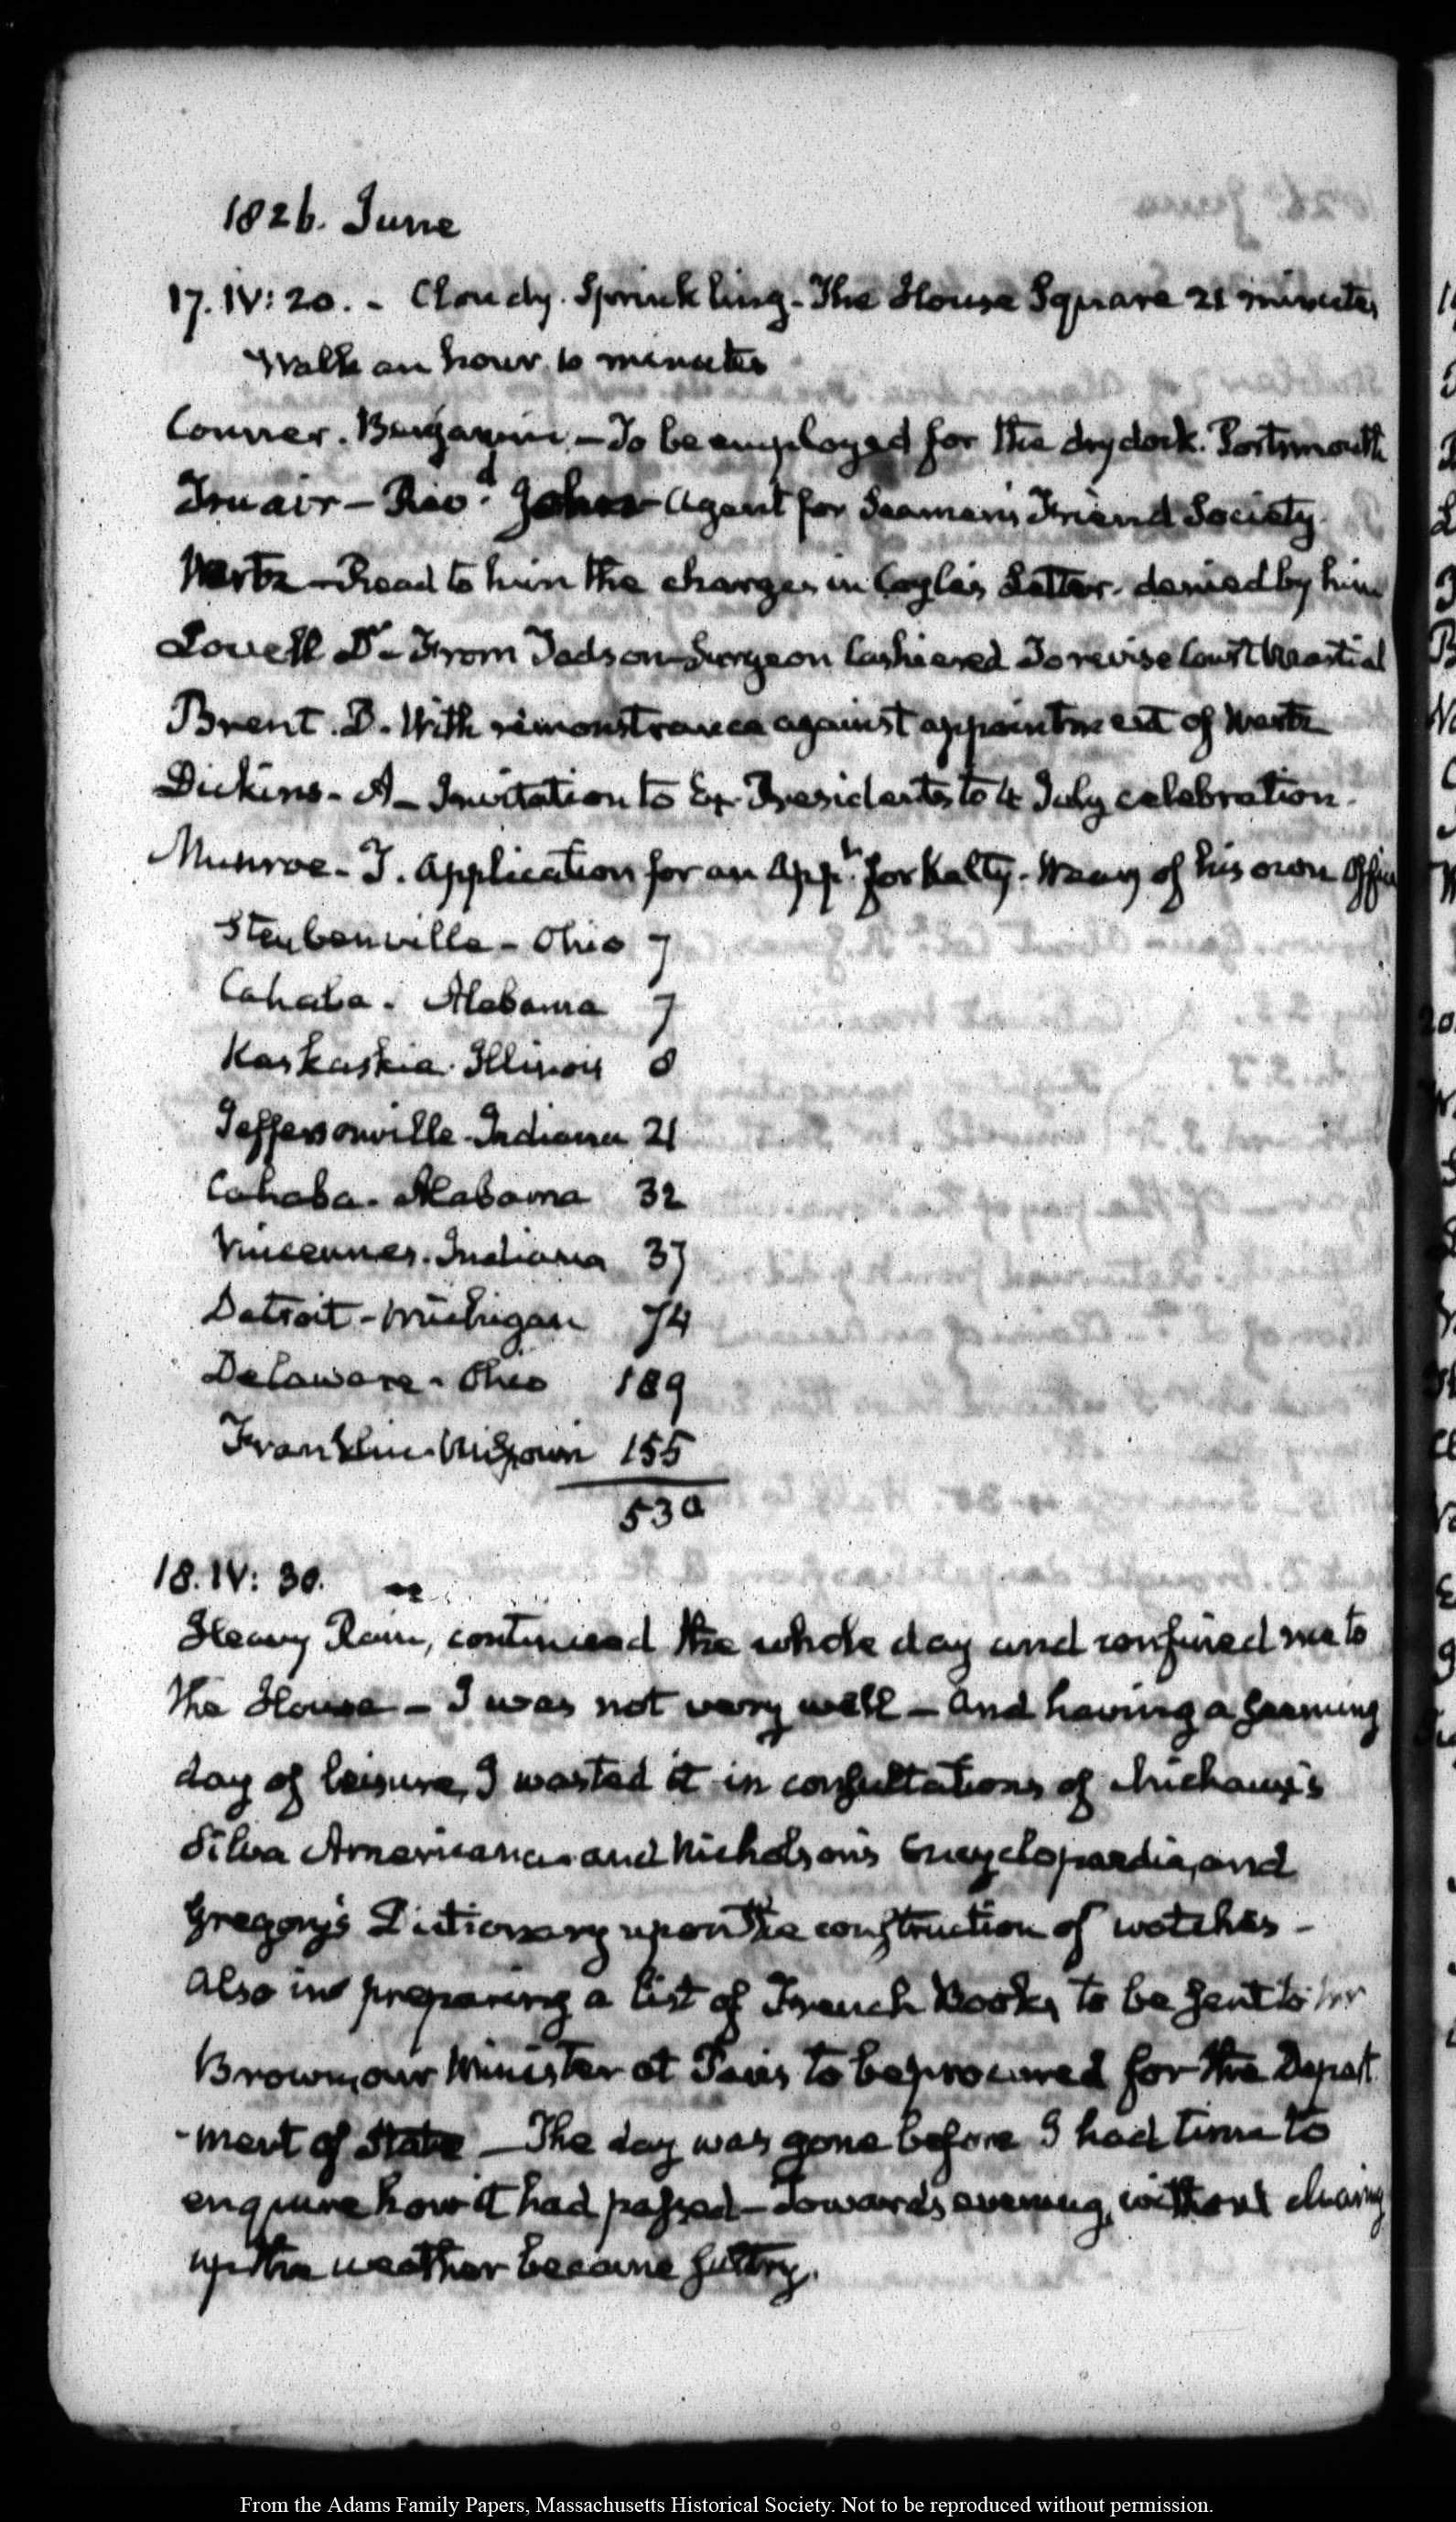 1826. June
17. IV: 20. - Cloudy. Sprinkling - The House Square 21 minutes
Walk an hour 10 minutes
Conner. Benjamin. - To be employed for the dry dock. Portsmouth
Truair - Revd. John - Agent for Seamen's Friend Society.
Wertz - Read to him the charges in Coyle's Letter. denied by him
Lovell Dr. - From Todson - Surgeon Cashiered To revise Court Martial
Brent. D. With remonstrance against appointment of Wertz
Dickins - A - Invitation to Ex-Presidents to 4 July celebration.
Munroe - T. Application for an Appt. for Kalty. Weary of his own Office
Steubenville - Ohio 7
Cahaba - Alabama 7
Kaskaskia. Illinois 8
Jeffersonville - Indiana 21
Cahaba - Alabama 32
Vincennes. Indiana 37
Detroit - Michigan 74
Delaware - Ohio 189
Franklin - Missouri 155
530
18. IV: 30.
Heavy Rain, continued the whole day and confined me to
the House - I was not very well - and having a seeming
day of leisure, I wasted it in consultations of Michaux's
Silva Americana and Nicholson's Encyclopaedia, and
Gregory's Dictionary upon the construction of watches -
also in preparing a list of French Books to be sent to Mr
Brown, our Minister at Paris to be procured for the Depart
-ment of State - The day was gone before I had time to
enquire how it had passed - Towards evening, without clearing
up the weather became sultry.
From the Adams Family Papers, Massachusetts Historical Society. Not to be reproduced without permission.